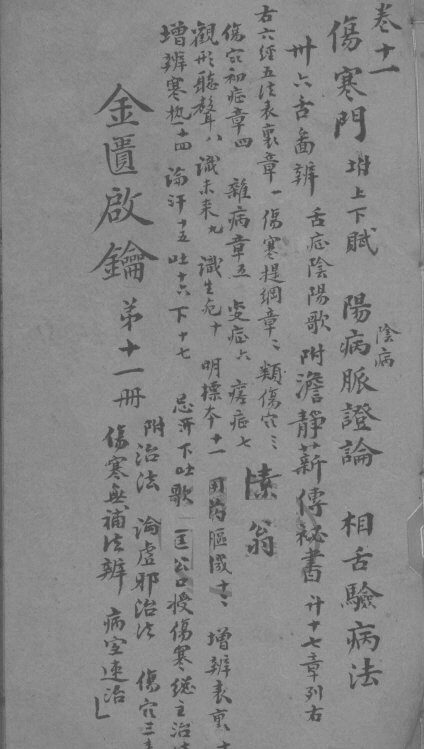 卷十一
傷寒門 坿上下賦 陽病脈證論 相舌驗病法
陰病
卅六舌啚辨 舌症陰陽歌 附澹靜薪傳祕書 廾十七章列右
右六經五法表裏章一 傷寒提綱章二 類傷穴三
傷穴初症章四 雜病章五 变症六 瘥症七
觀形聽聲八 識未来九 識生危十 明標本十一 用药
增辨寒热十四 論汗十五 吐十六 下十七 忌汗下吐歌 匡公授傷寒總主治
增辨表裏十
愫翁
金匱啟鑰 第十一冊
附治法 論虛邪治法 傷穴三
傷寒無補法辨 病宜速治